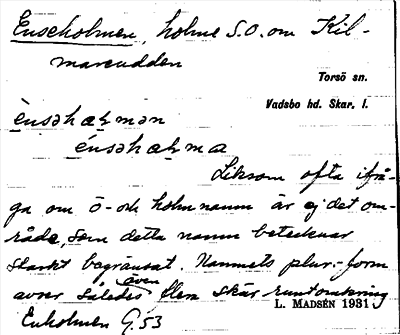 Enseholmen, holme S.O. om Kil-
mareudden
Torsö sn.
Vadsbo hd. Skar. l.
ènsəhaɫmən
énsəhaɫma
Liksom ofta ifrå-
ga om ö- och holmnamn är ej det om-
råde, som detta namn betecknar
starkt begränsat. Namnets plur.-form
avser således även flera skär runtomkring
L. MADSÉN 1931
Enholmen G. 53